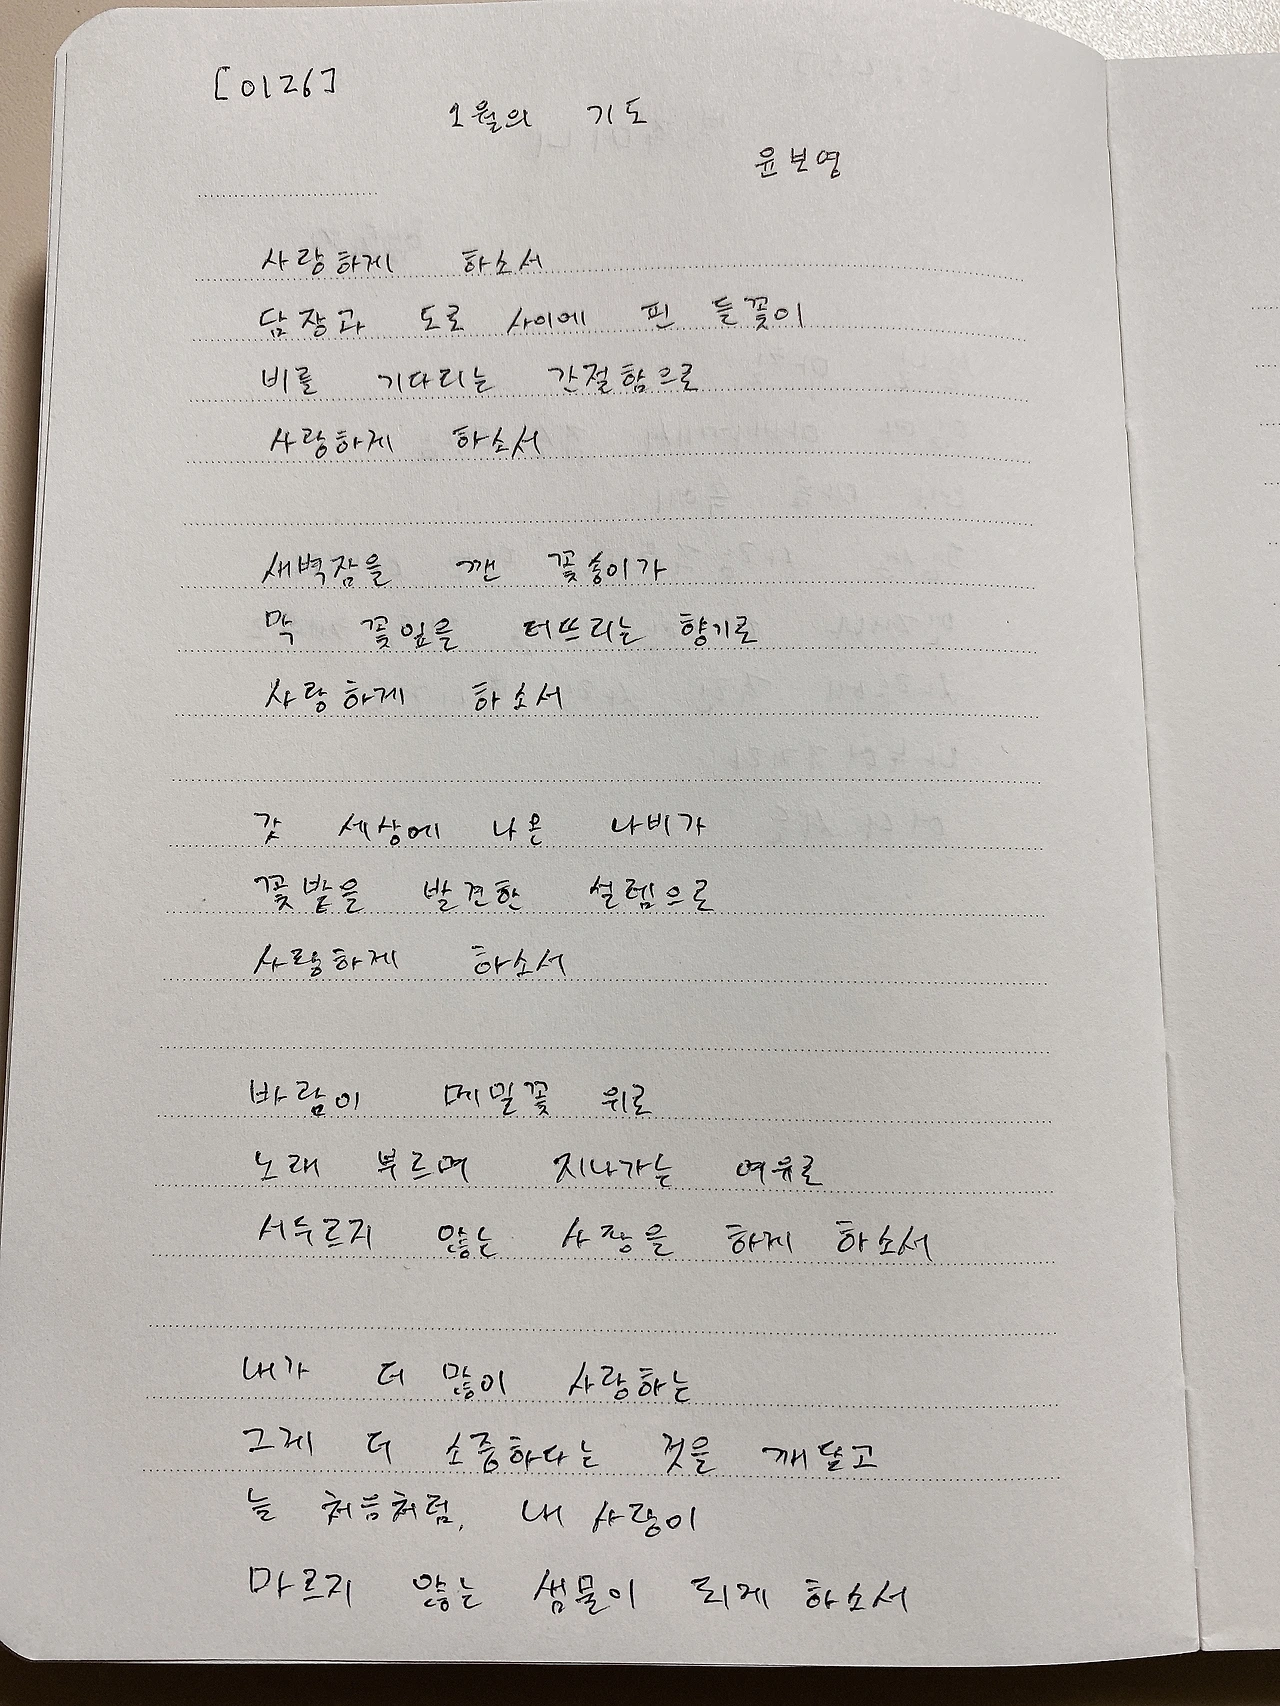 [0126]
오월의 기도
윤보영
사랑하게 하소서
담장과 도로 사이에 핀 들꽃이
비를 기다리는 간절함으로
사랑하게 하소서
새벽잠을 깬 꽃송이가
막 꽃잎을 터뜨리는 향기로
사랑하게 하소서
갓 세상에 나온 나비가
꽃밭을 발견한 설렘으로
사랑하게 하소서
바람이 메밀꽃 위로
노래 부르며 지나가는 여유로
서두르지 않는 사랑을 하게 하소서
내가 더 많이 사랑하는
그게 더 소중하다는 것을 깨달고
늘 처음처럼, 내 사랑이
마르지 않는 샘물이 되게 하소서